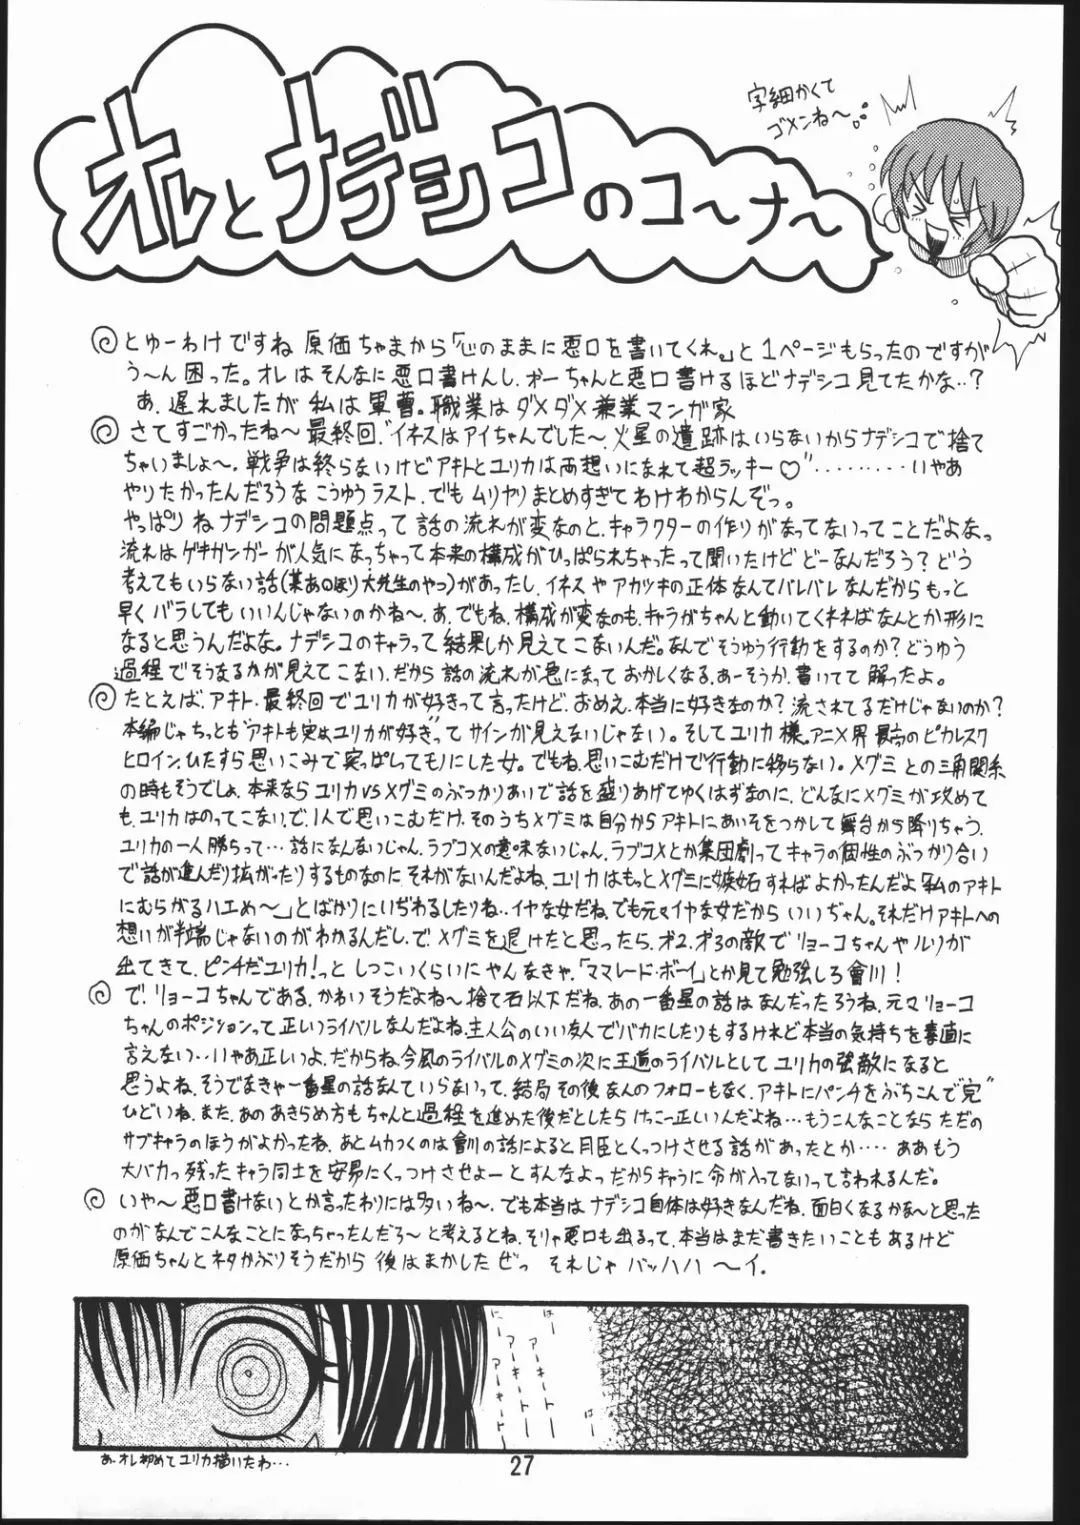 オレとナデシコのコ〜ナ〜
字細かくて
ゴメンね〜
とゆーわけですね 原価ちゃまから「心のままに悪口を書いてくれ。」と1ページもらったのですが
う〜ん困った。オレはそんなに悪口書けんし、かーちゃんと悪口書けるほどナデシコ見てたかな‥?
あ、遅れましたが 私は軍曹。職業はダメダメ兼業マンガ家
さてすごかったね〜最終回、"イネスはアイちゃんでした〜火星の遺跡はいらないからナデシコで捨て
ちゃいましょ〜、戦争は終らないけどアキトとユリカは両想いになれて超ラッキー♡"………いやあ
やりたかったんだろうな こうゆうラスト、でもムリヤリまとめすぎてわけわからんぞっ。
やっぱりねナデシコの問題点って話の流れが変なのと、キャラクターの作りがなってないってことだよなっ
流れはゲキガンガーが人気になっちゃって本来の構成がひっぱられちゃったって聞いたけどどーなんだろう?どう
考えてもいらない話(某あ○ほり大先生のやつ)があったし、イネスやアカツキの正体なんてバレバレなんだからもっと
早くバラしてもいいんじゃないのかね〜、あ、でもね、構成が変なのも、キャラがちゃんと動いてくれればなんとか形に
なると思うんだよな。ナデシコのキャラって結果しか見えてこないんだ。なんでそうゆう行動をするのか?どうゆう
過程でそうなるかが見えてこない、だから話の流れが急になっておかしくなる、あーそうか、書いてて解ったよ。
たとえば、アキト、最終回でユリカが好きって言ったけど、おめえ、本当に好きなのか?流されてるだけじゃないのか?
本編じゃちっとも"アキトも実はユリカが好き"ってサインが見えないじゃない。そしてユリカ様。アニメ界最高のピカレスク
ヒロイン、ひたすら思いこみで突っぱしってモノにした女。でもね、思いこむだけで行動に移らない。メグミとの三角関係
の時もそうでしょ、本来ならユリカVSメグミのぶつかりあいで話を盛りあげてゆくはずなのに、どんなにメグミが攻めて
も、ユリカはのってこない、で、1人で思いこむだけ、そのうちメグミは自分からアキトにあいそをつかして舞台から降りちゃう、
ユリカの一人勝ちって…話になんないじゃん、ラブコメの意味ないじゃん、ラブコメとか集団劇ってキャラの個性のぶつかり合い
で話が進んだり拡がったりするものなのにそれがないんだよね、ユリカはもっとメグミに嫉妬すればよかったんだよ「私のアキト
にむらがるハエめ〜」とばかりにいぢわるしたりね‥イヤな女だね、でも元々イヤな女だからいいぢゃん。それだけアキトへの
想いが半端じゃないのがわかるんだし、で、メグミを退けたと思ったら、オ2、オ3の敵でリョーコちゃんやルリが
出てきて、ピンチだユリカ!っとしつこいくらいにやんなきゃ、「ママレード・ボーイ」とか見て勉強しろ會川!
で、リョーコちゃんである、かわいそうだよね〜捨て石以下だね、あの一番星の話はなんだったろうね、元々リョーコ
ちゃんのポジションって正しいライバルなんだよね、主人公のいい友人でバカにしたりもするけれど本当の気持ちを素直に
言えない‥いやあ正しいよ、だからね、今風のライバルのメグミの次に王道のライバルとしてユリカの強敵になると
思うよね、そうでなきゃ一番星の話なんていらないって、結局その後なんのフォローもなく、アキトにパンチをぶちこんで"完"
ひどいね、また、あのあきらめ方もちゃんと過程を進めた後だとしたらけっこー正しいんだよね…もうこんなことならただの
サブキャラのほうがよかったね、あとムカつくのは會川の話によると月臣とくっつけさせる話があったとか‥‥ああもう
大バカっ残ったキャラ同士を安易にくっつけさせよーとすんなよっだからキャラに命が入ってないって言われるんだ。
いや〜悪口書けないとか言ったわりには多いね〜、でも本当はナデシコ自体は好きなんだね、面白くなるかな〜と思った
のがなんでこんなことになっちゃったんだろ〜と考えるとね、そりゃ悪口も出るって、本当はまだ書きたいこともあるけど
原価ちゃんとネタかぶりそうだから 後はまかしたぜっ それじゃ バッハハ〜イ.
アーキートー
アーキートー
あ、オレ初めてユリカ描いたわ…
27